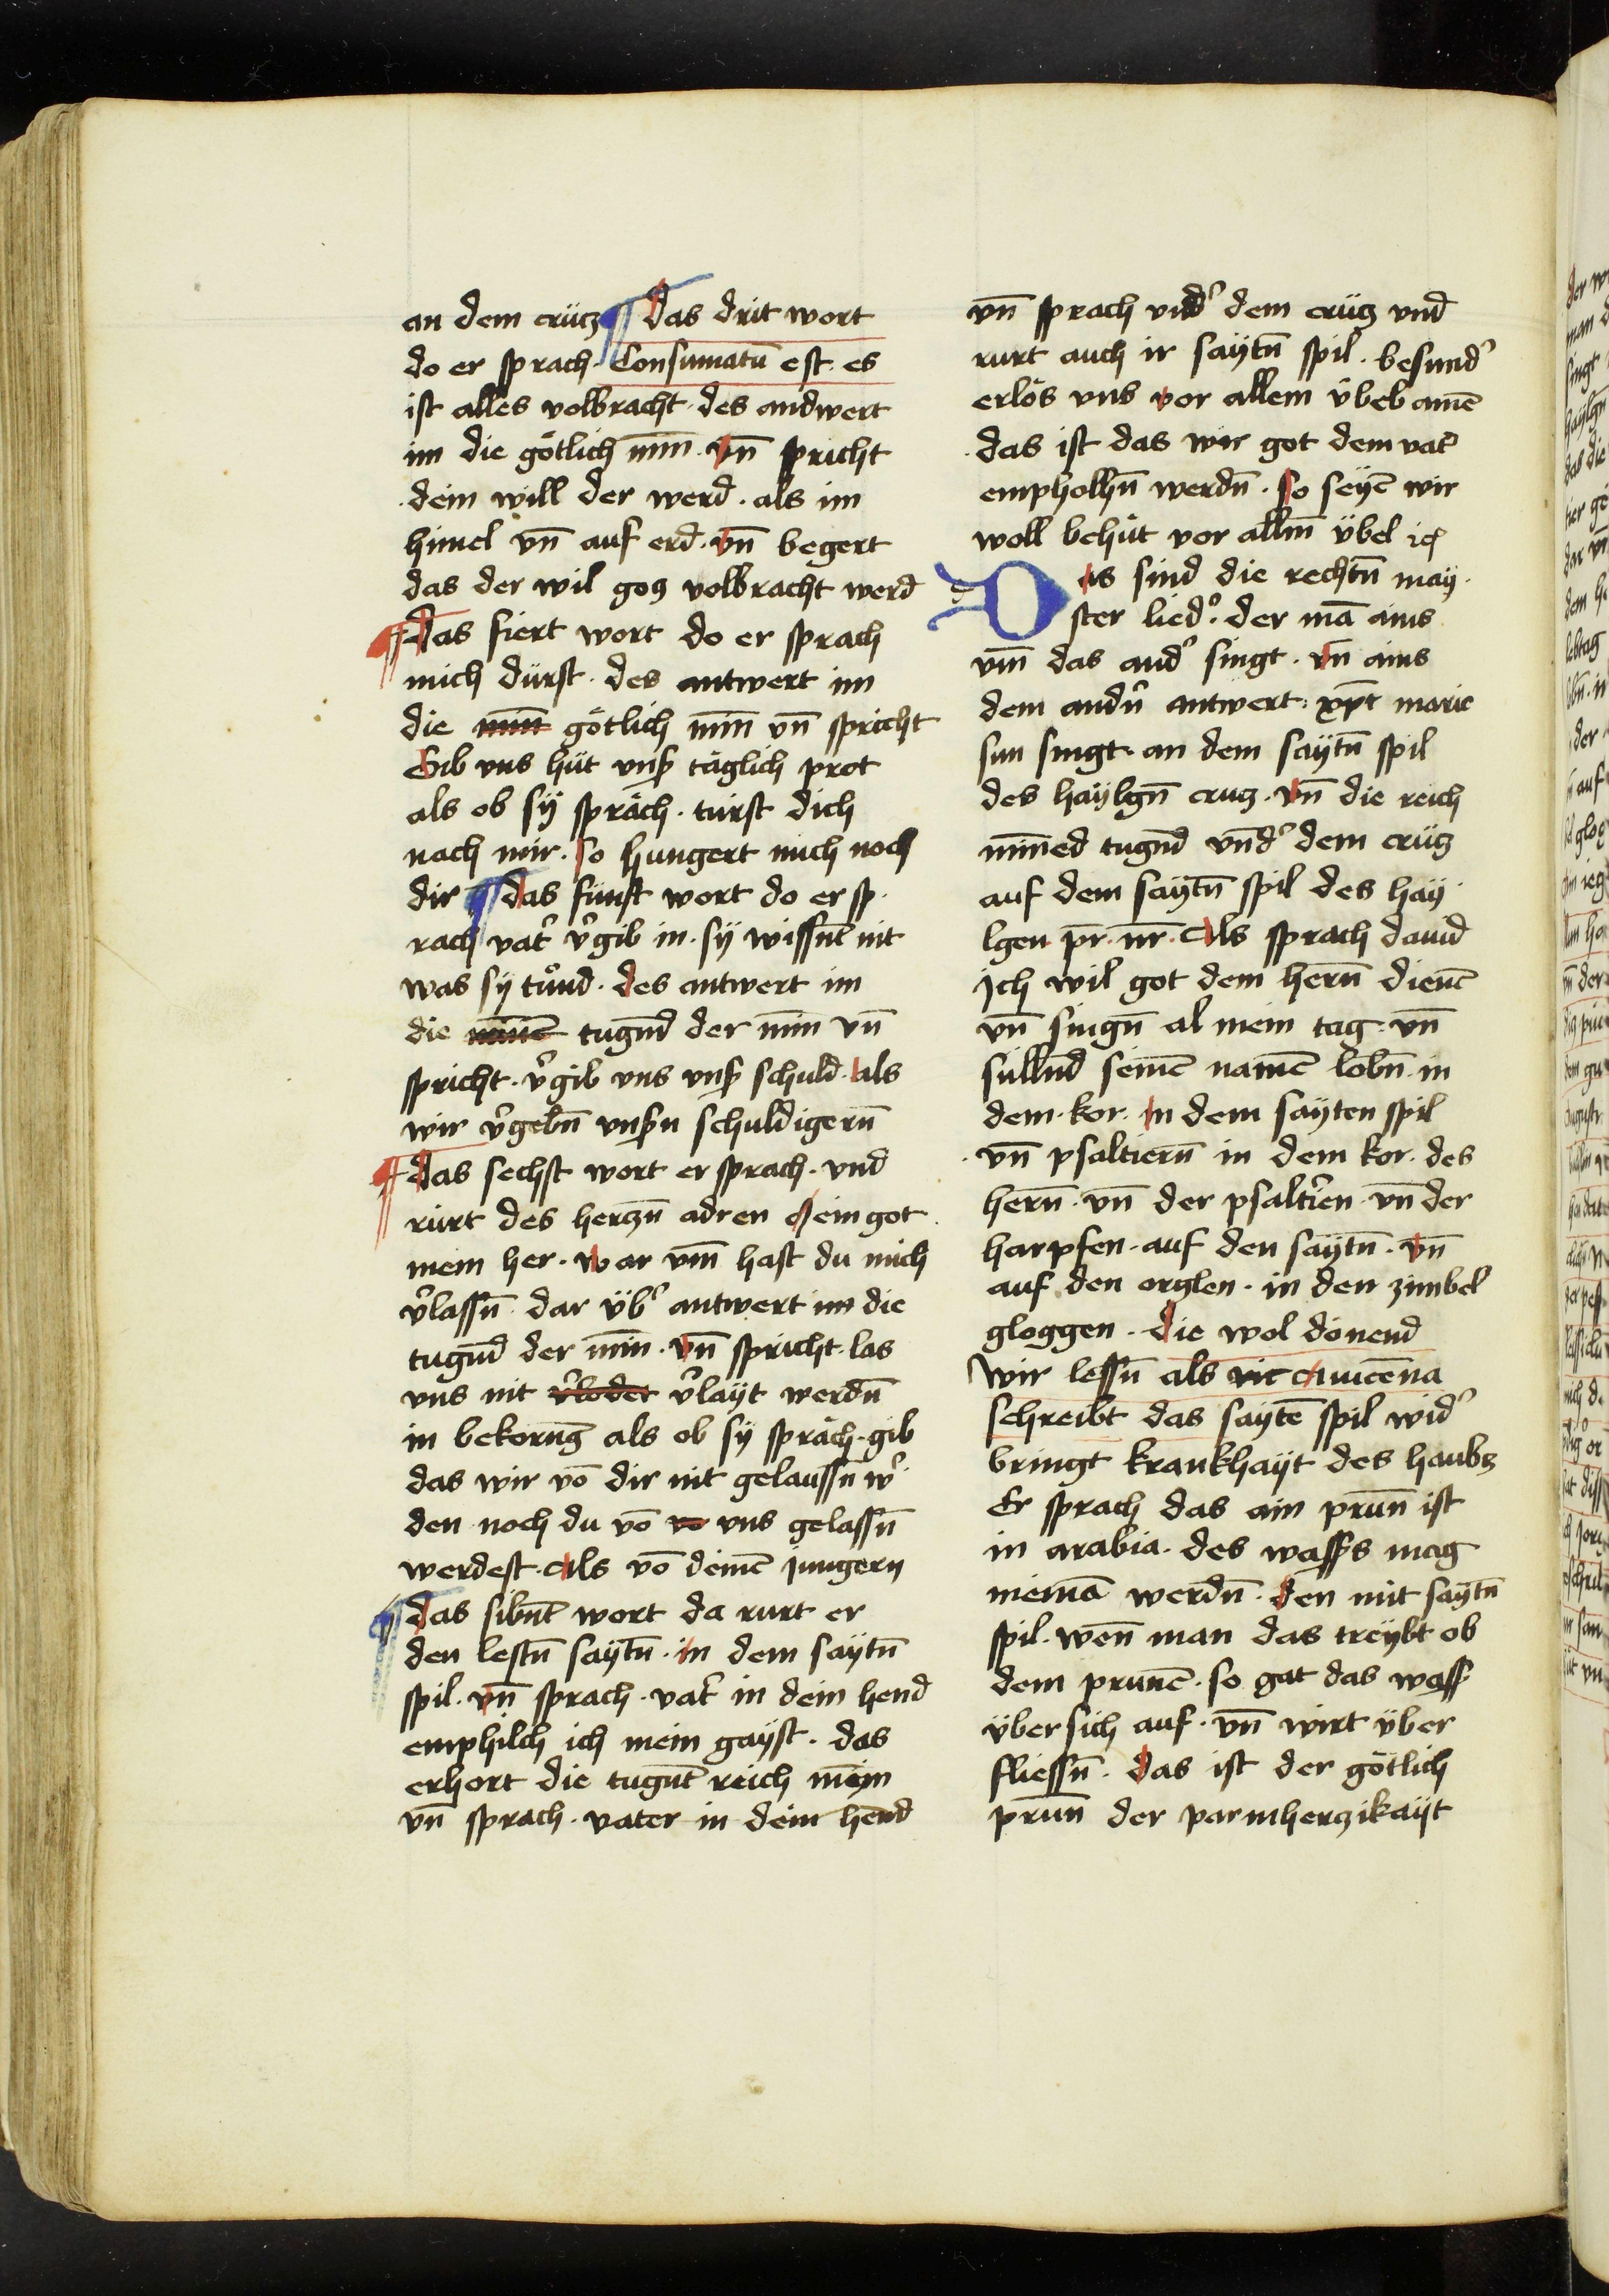 an dem crütz ¶ Das drit wort
do er sprach Consumatū est · es
ist alles volbracht · des andwert
im die götlich min̄ · vn̄ spricht
dein will der werd · als im
himel vn̄ auf erd · vn̄ begert
das der wil gotz volbracht werd
¶ Das fiert wort do er sprach
mich dürst · des antwert im
die min̄ götlich min̄ vn̄ spricht
Gib vns hüt vnsʳ täglich prot
als ob sÿ spräch · türst dich
nach mir · so hungert mich noch
dir ¶ das fünft wort do er sp
rach vatʳ v̓gib in · sÿ wissnt̄ nit
was sy tuͦnd · des antwert im
die minē tugn̄d der min̄ vn̄
spricht · v̓gib vns vnsʳ schuld · als
wir v̓gebn̄ vnsʳn schuldigern̄
¶ Das sechst wort er sprach · vnd
rürt des hertzn̄ adren Mein got
mein her · war vm̄ hast du mich
v̓lassn̄ · dar übʳ antwert im die
tugn̄d der min̄ · vn̄ spricht · las
vns nit v̓loder v̓layt werdn̄
in bekorn̄g als ob sÿ spräch · gib
das wir vō dir nit gelaussn̄ wʳ
den noch du vō vo vns gelassn̄
werdest · Als vō deinē jungern
¶ das sibnt̄ wort da rurt er
den lestn̄ saÿtn̄ · in dem saÿtn̄
spil · vn̄ sprach · vatʳ in dein hend
emphilch ich mein gaÿst · das
erhort die tugnt̄ reich mein̄
vn̄ sprach · vater in dein hend
vn̄ sprach vndʳ dem crütz vnd
rurt auch ir saÿtn̄ spil · besundʳ
erlös vns vor allem übel amē
das ist das wir got dem vatʳ
empholhn̄ werdn̄ · so seÿē wir
woll behüt vor allm̄ übel
Das sind die rechtn̄ maÿ
ster liedʳ · der mā ains
vm̄ das andʳ singt · vn̄ ains
dem andn̄ antwert · xp̄t marie
sun singt · an dem saÿtn̄ spil
des haÿlgn̄ crutz · vn̄ die reich
min̄ed tugn̄d vn̄dʳ dem crütz
auf dem saÿtn̄ spil des haÿ
lgen pr̄ · nr̄ · Als sprach dauid
jch wil got dem hern̄ dienē
vn̄ singn̄ al mein tag · vn̄
sülln̄d seinē namē lobn̄ in
dem · kor · in dem saÿten spil
vn̄ psaltiern̄ in dem kor · des
hern̄ · vn̄ der psaltʳien · vn̄ der
harpfen · auf den saÿtn̄ · vn̄
auf den orglen · in den zimbelʳ
gloggen · die wol dönend
Wir lessn̄ als vic Auicēna
schreibt das saÿtē spil widʳ
bringt krankhaÿt des haubtz
Er sprach das ain prun̄ ist
in arabia · des wassʳs mag
niemā werdn̄ · den mit saÿtn̄
spil · wen̄ man das treÿbt ob
dem prunē · so gat das wassʳ
übersich auf · vn̄ wirt über
fliessn̄ · das ist der götlich
prun̄ der parmhertzikaÿt